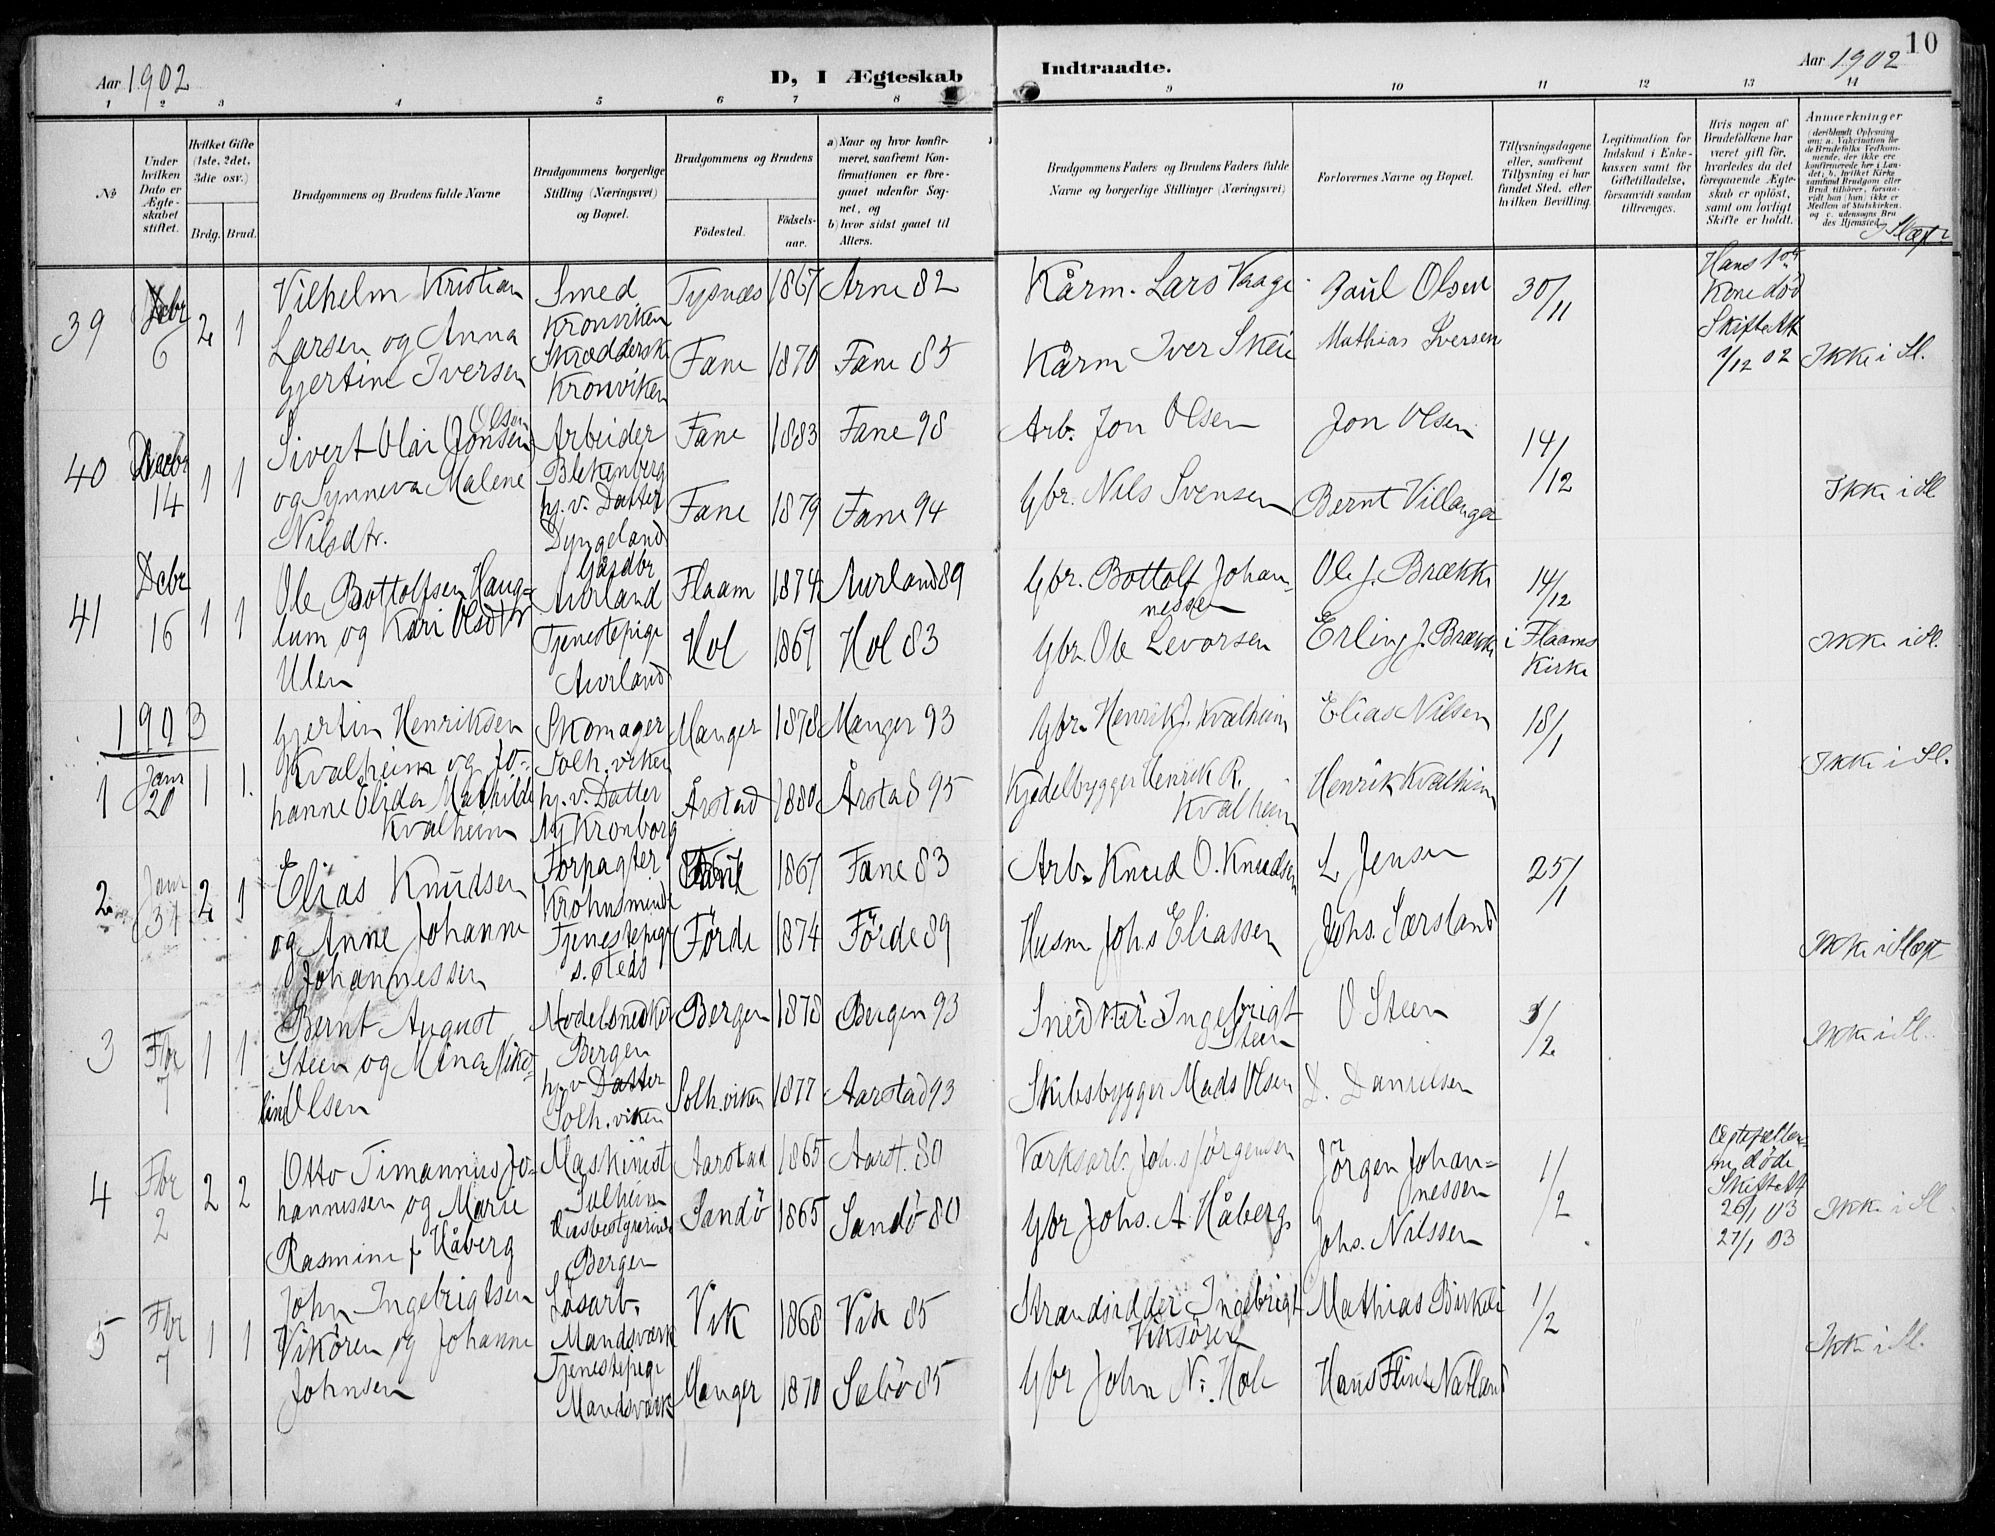 10
Aar 1902
D, I Ægteskab Indtraadte.
Aar 1902
1 2 3 4 5 6 7 8 9 10 11 12 13 14
№
Under hvilken Dato er Ægteskabet stiftet.
Hvilket Gifte (1ste, 2det, 3die osv.)
Brdg. Brud.
Brudgommens og Brudens fulde Navne
Brudgommens borgerlige Stilling (Næringsvei) og Bopæl.
Brudgommens og Brudens
Fødested.
Fødselsaar.
a) Naar og hvor konfirmeret, saafremt Konfirmationen er foregaaet udenfor Sognet, og
b) hvor sidst gaaet til Alters.
Brudgommens Faders og Brudens Faders fulde Navne og borgerlige Stillinger (Næringsvei)
Forlovernes Navne og Bopæl.
Tillysningsdagene eller, saafremt Tillysning ei har fundet Sted, efter hvilken Bevilling.
Legitimation for Indskud i Enkekassen samt for Giftetilladelse, forsaavidt saadan tiltrænges.
Hvis nogen af Brudefolkene har været gift før, hvorledes da det foregaaende Ægteskab er opløst, samt om lovligt Skifte er holdt.
Anmærkninger (deriblandt Oplysning om: a. Vakcination for de Brudefolks Vedkommende, der ikke ere konfirmerede her i Landet; b. hvilket Kirkesamfund Brudgom eller Brud tilhører, forsaavidt han (hun) ikke er Medlem af Statskirken, og c. udensogns Brudes Hjemsted.
i Slægt
39 Dcbr 6 2 1
Vilhelm Kristian Smed Tysnæs 1867 Arne 82 Kårm. Lars Vaage Paul Olsen 30/11 Hans 1ste Kone død
Larsen og Anna Kronviken Skiftatt
Gjertine Iversen Skrædderske Fane 1870 Fane 85 Kårm Iver Skeie Mathias Iversen 2/12 02 Ikke i Sl.
Kronviken
40 Decbr 14 1 1
Olsen
Sivert Olai Jonsen Arbeider Fane 1883 Fane 98 Arb. Jon Olsen Jon Olsen 14/12
og Synneva Malene Blekenberg
Nilsdtr. hj. v. Datter Fane 1879 Fane 94 Gbr. Nils Svensen Bernt Villanger Ikke i Sl
Dyngeland
41 Dcbr 16 1 1
Ole Bottolfsen Haug- Gårdbr Aurland Flaam 1874 Aurland 89 Gbr. Bottolf Johannessen Ole J. Brække 14/12
lum og Kari Olsdtr Tjenestepige Hol 1867 Hol 83 Gbr. Ole Levorsen Erling J. Brække i Flaams Kirke Ikke i Sl.
Ulen Aurland
1903
1 Janr 20 1 1.
Gjertin Henriksen Skomager Manger 1878 Manger 93 Gbr. Henrik J. Kvalheim Elias Nilsen 18/1
Kvalheim og Jo- Solh. viken Ikke i Sl.
hanne Elida Mathilde hj. v. Datter Årstad 1880 Årstad 95 Kjedelbygger Henrik R. Kvalheim Henrik Kvalheim
Kvalheim Ny Kronborg
2 Janr 31 2 1
Elias Knudsen Forpagter 1867 Fane 83 Arb. Knud O. Knudsen L. Jensen 25/1
Krohnsminde
og Anne Johanne Tjenestepige Förde 1874 Förde 89 Husm Johs Eliassen Johs. Særsland Ikke i Slægt
Johannessen s. steds
3 Fbr 7 1 1
Bernt August Modelsnedker Bergen 1878 Bergen 93 Snedker Ingebrigt Steen O Steen 1/2 Ikke i Sl.
Steen og Mina Niko- Bergen
line Olsen hj. v Datter Solh. viken 1877 Aarstad 93 Skibsbygger Mads Olsen D. Danielsen
Solh. viken
4 Fbr 2 2 2
Otto Timannus Jo- Maskinist Aarstad 1865 Aarst. 80 Værksarb. Johs Jörgensen Jörgen Johannessen 1/2 Ægtefællerne døde
hannessen og Marie Solheim Skiftatt
Rasmine f Håberg Bergen Sandö 1865 Sandö 80 Gbr Johs. A. Håberg Johs. Nilssen 26/1 03 27/1 03 Ikke i Sl.
5 Fbr 7 1 1
John Ingebrigtsen Løsarb. Vik 1868 Vik 85 Strandsidder Ingebrigt Viksören Mathias Birkeli 1/2
Vikören og Johanne Mandsværk Ikke i Sl.
Johnsen Tjenestepige Manger 1870 Sæbö 85 Gbr John N. Hole Hans Flint Natland
Mandsværk